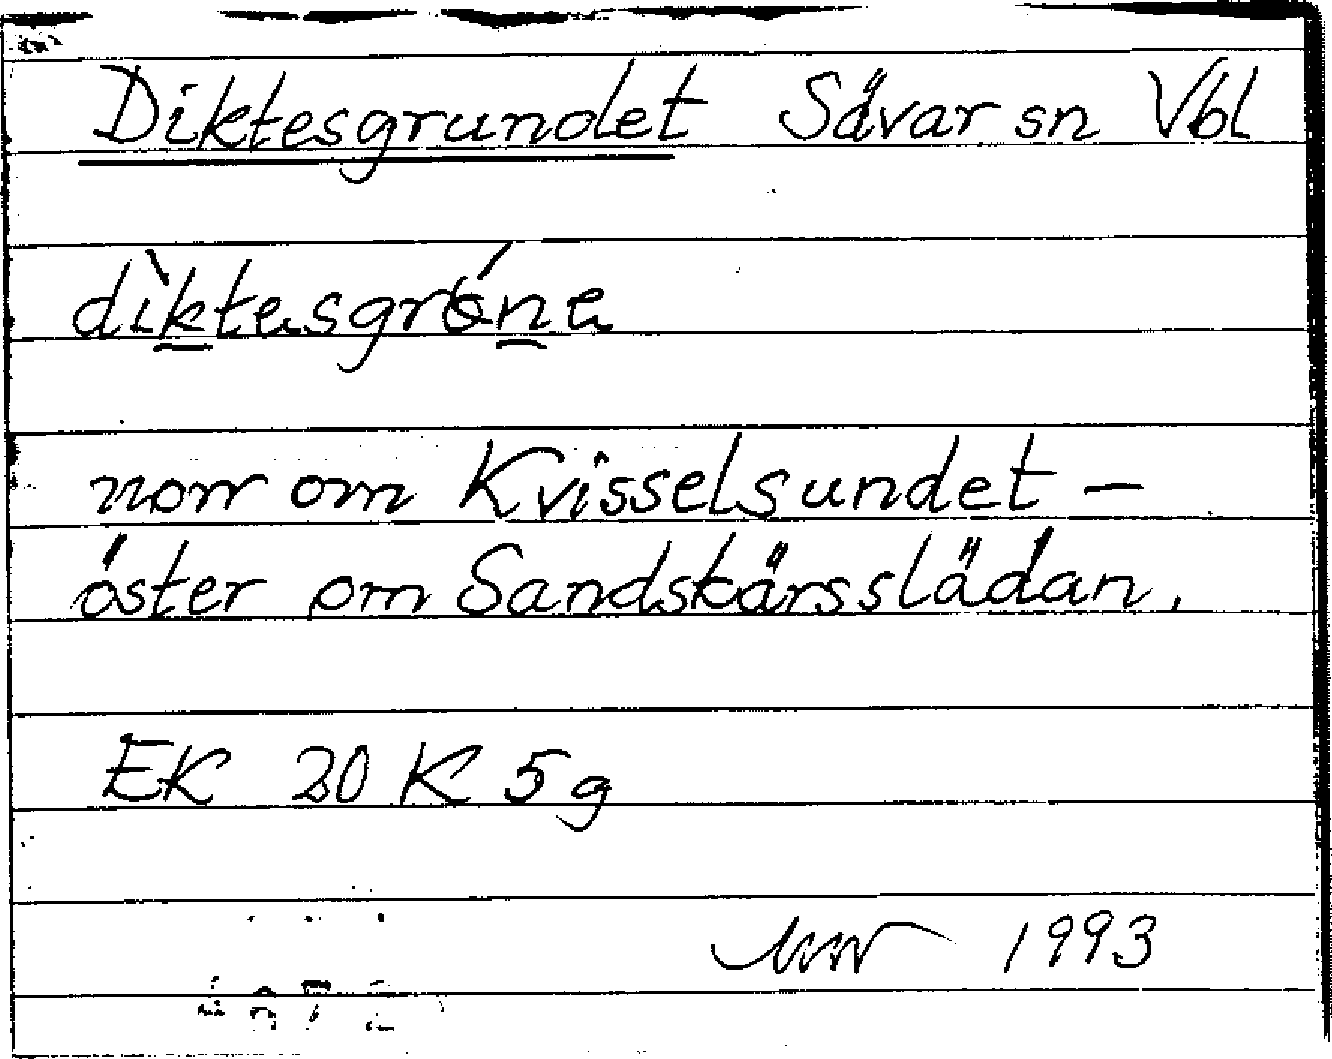 Diktesgrundet Sävar sn Vbl
norr om Kvisselsundet –
öster om Sandskärsslädan.
EK 20 K 5g
1993